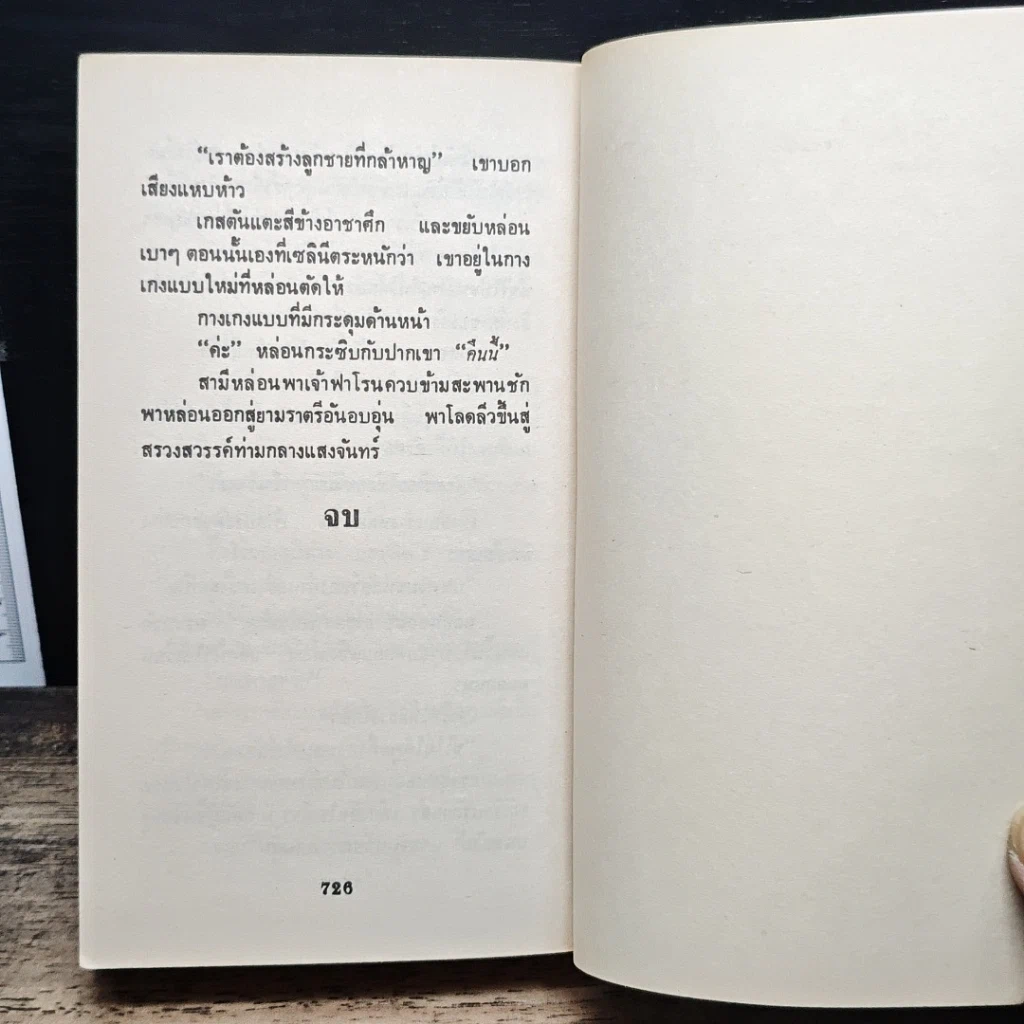 “เราต้องสร้างลูกชายที่กล้าหาญ” เขาบอก
เสียงแหบห้าว
เกสตันแตะสีข้างอาชาศึก และขยับหล่อน
เบาๆ ตอนนั้นเองที่เซลินีตระหนักว่า เขาอยู่ในกาง
เกงแบบใหม่ที่หล่อนตัดให้
กางเกงแบบที่มีกระดุมด้านหน้า
“ค่ะ” หล่อนกระซิบกับปากเขา “คืนนี้”
สามีหล่อนพาเจ้าฟาโรนควบข้ามสะพานชัก
พาหล่อนออกสู่ยามราตรีอันอบอุ่น พาโลดลิ่วขึ้นสู่
สรวงสวรรค์ท่ามกลางแสงจันทร์
จบ
726